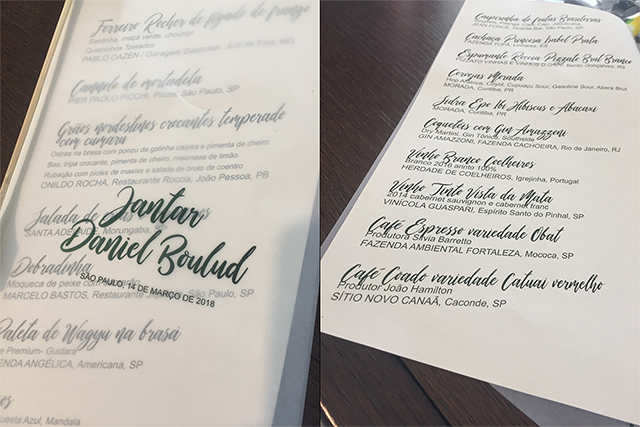 Ferrero Rocher de fígado de frango
Sardinha, maçã verde, chouriço
Quiabinhos Tostados
PABLO OAZEN / Garagem Gastrobar, Juiz de Fora,
Cannolo de mortadela
PIER PAOLO PICCHI, Picchi, São Paulo, SP
Grãos nordestinos crocantes temperado
com cumaru
Ostras na brasa com ponzu de galinha caipira e pimenta de cheiro
Bao, tripa crocante, pimenta de cheiro, maionese de limão
Rubacão com picles de maxixe e salada de broto de coentro
ONILDO ROCHA, Restaurante Roccia, João Pessoa, PB
Salada de
SANTA ADELAIDE, Morungaba,
Jantar
Daniel Boulud
SÃO PAULO, 14 DE MARÇO DE 2018
Dobradinha
Moqueca de peixe com
MARCELO BASTOS, Restaurante São Paulo, SP
Paleta de Wagyu na brasa
e Premium- Guidara
ENDA ANGÉLICA, Americana, SP
uesta Azul, Mandala
Caipirinha de frutas Brasileiras
JEAN PONCE, Guarita Bar, São Paulo, SP
Cachaça Princesa Isabel Prata
FAZENDA TUPÃ, Linhares, ES
Espumante Reccia Pizzato Brut Branco
PIZZATO VINHAS E VINHOS D.O.VV, Bento Gonçalves, RS
Cervejas Morada
Hop Arábica, Coyot, Cupuaçu Sour, Gasoline Sour, Abara Brut
MORADA, Curitiba, PR
Sidra Epe Ibi Hibiscus e Abacaxi
MORADA, Curitiba, PR
Coquetéis com Gin Amazzoni
Dry Martini, Gin Tônica, Southside
GIN AMAZZONI, FAZENDA CACHOEIRA, Rio de Janeiro, RJ
Vinho Branco Coelheiros
Branco 2016 arinto 100%
HERDADE DE COELHEIROS, Igrejinha, Portugal
Vinho Tinto Vista da Mata
2014 cabernet sauvignon e cabernet franc
VINÍCOLA GUASPARI, Espírito Santo do Pinhal, SP
Café Espresso variedade Obat
Produtora Silvia Barretto
FAZENDA AMBIENTAL FORTALEZA, Mococa, SP
Café Coado variedade Catuai vermelho
Produtor João Hamilton
SÍTIO NOVO CANAÃ, Caconde, SP